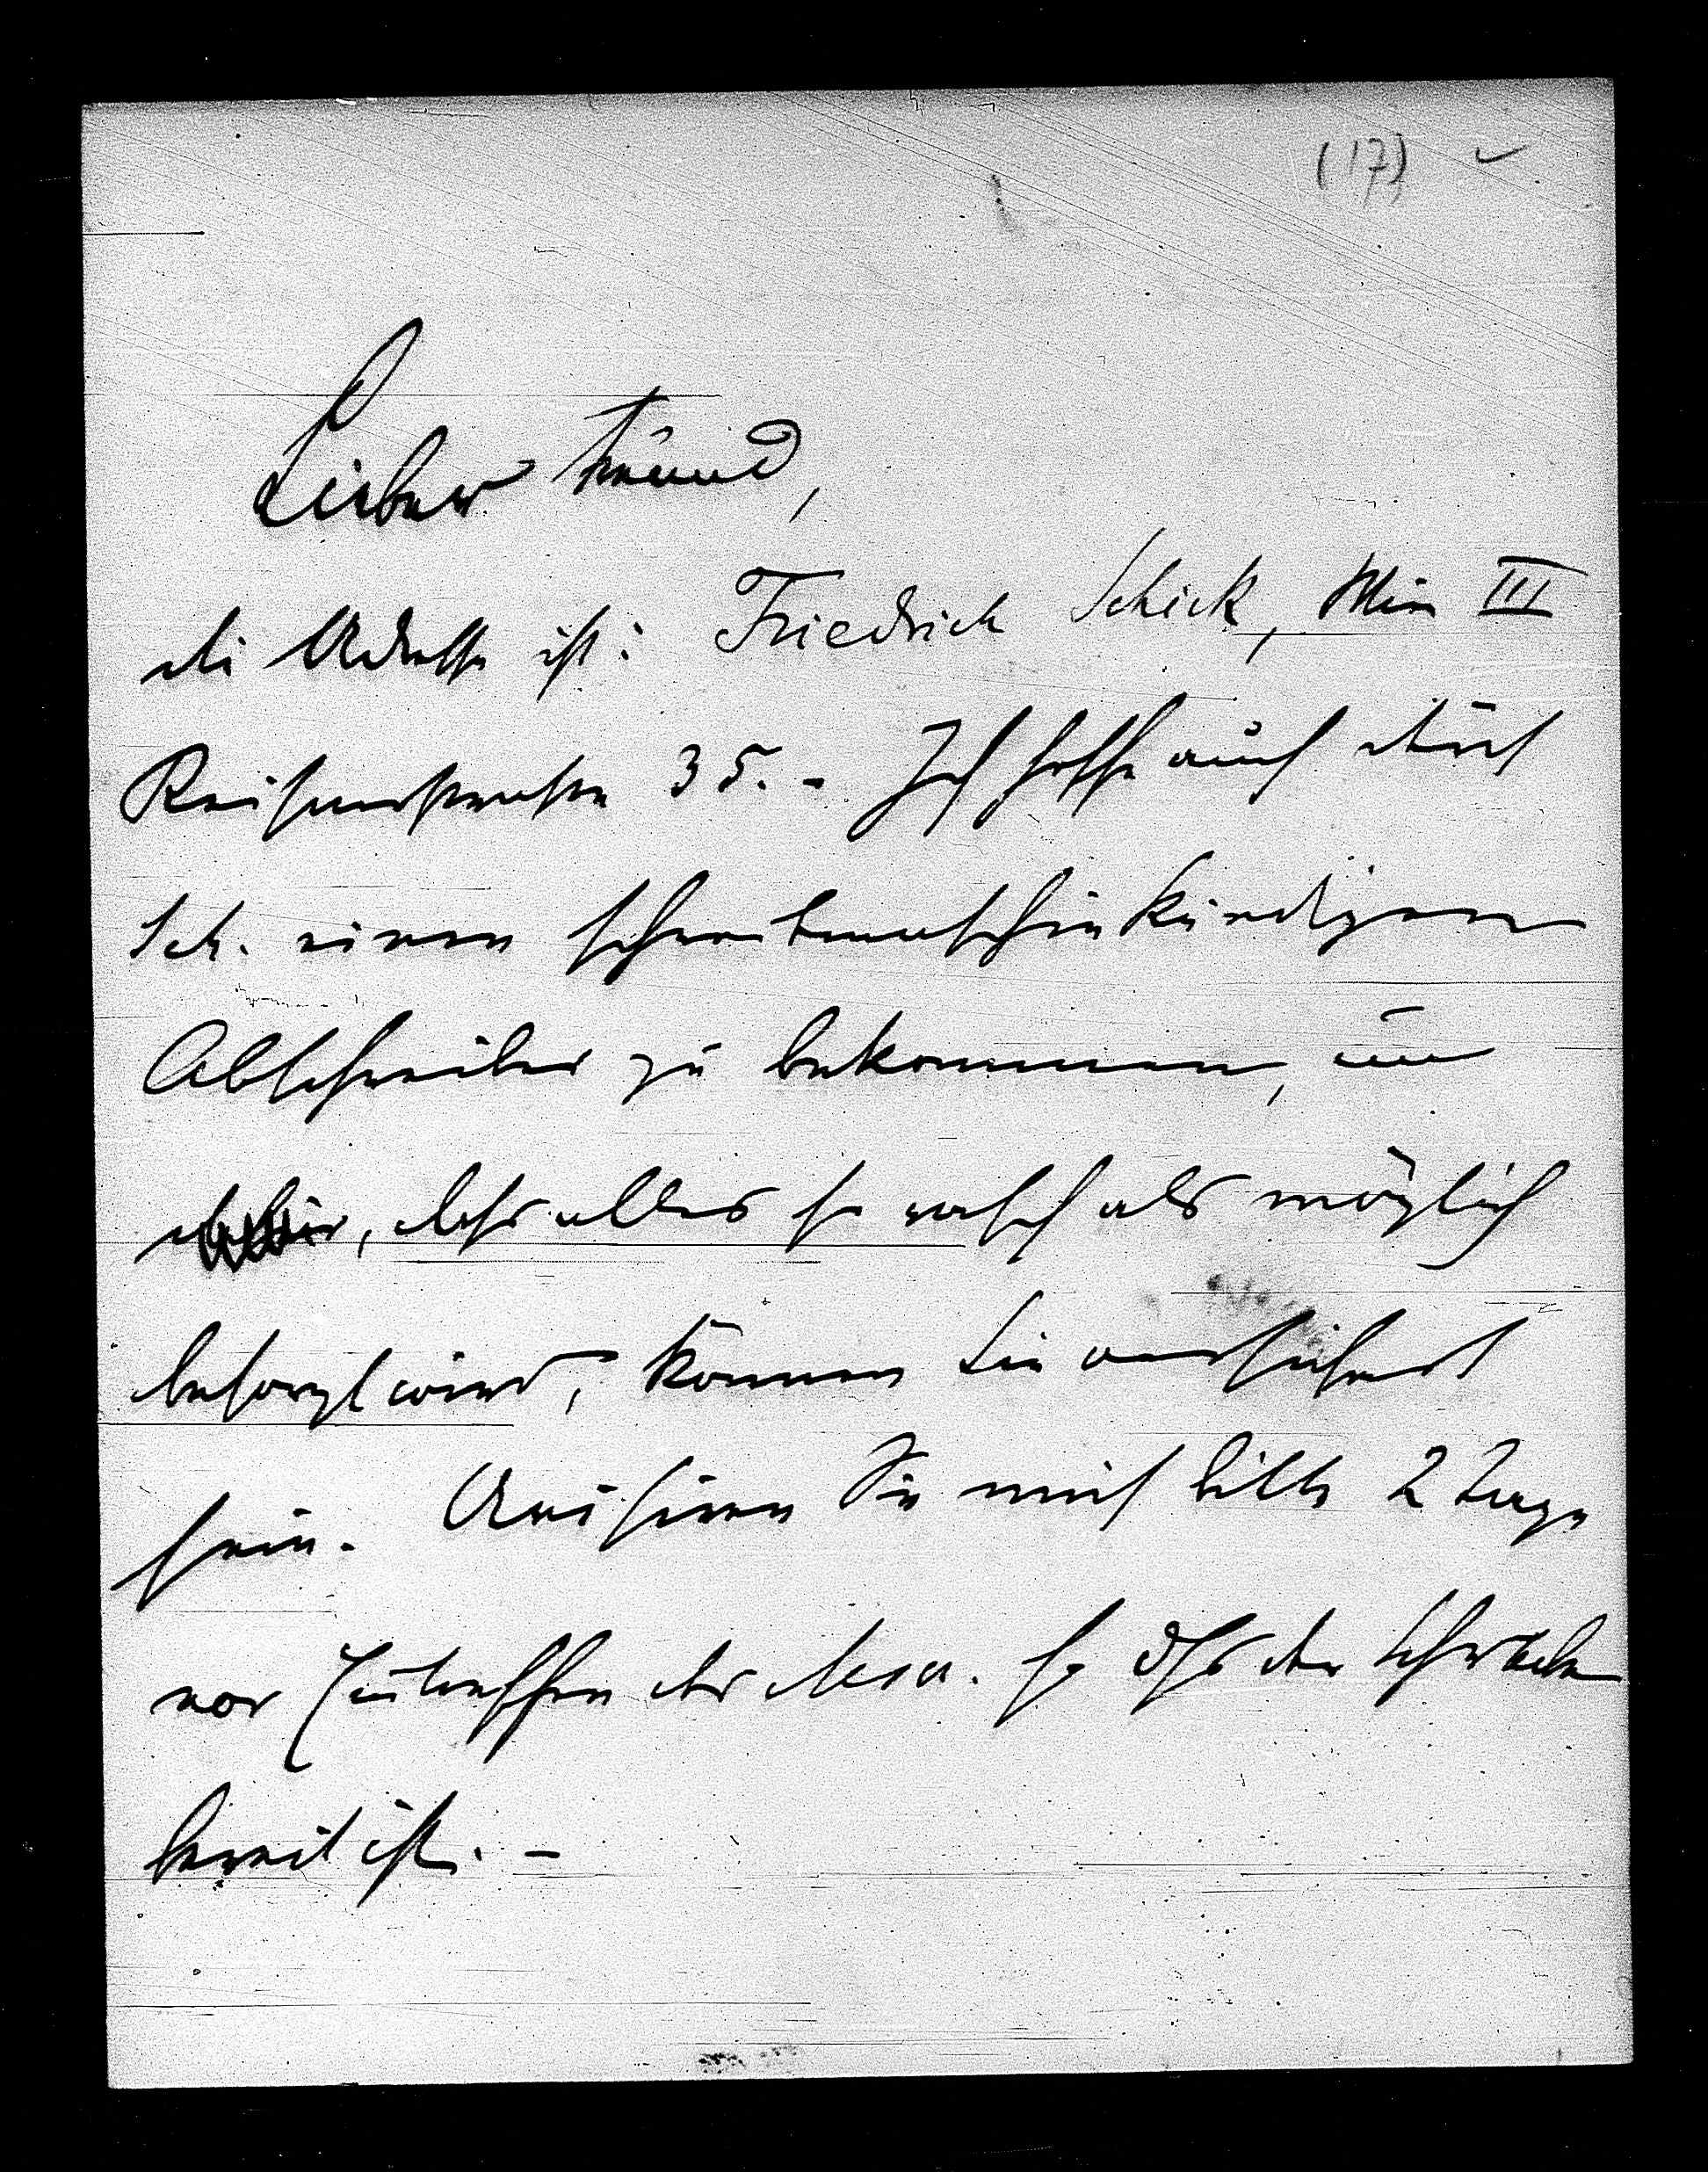 (17)
Lieber Freund,
die Adresse ist: Friedrich Schick, Wien III
Reisnerstrasse 35. – Ich hoffe auch durch
Sch. einen schreibmaschinkundigen
Abschreiber zu bekommen, um
, dass alles so rasch als möglich
besorgt wird, können Sie versichert
sein. Avisiren Sie mich bitte 2 Tage
vor Eintreffen des Mscr. so dass der
bereit ist. –